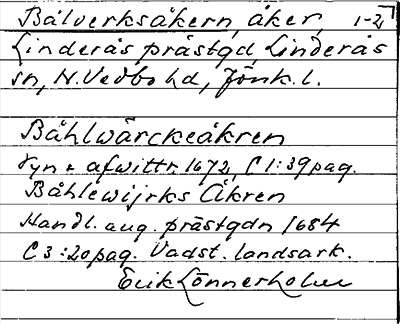 Bålverksåkern, åker, 1-2
Linderås prästgd, Linderås
sn, N. Vedbo hd, Jönk. l.
Båhlwärckeåkren
Syn & afwittr. 1672, C 1:39 pag.
Båhlewijrks Åkren
Handl. aug. prästgdn 1684
C 3:20 pag. Vadst. landsark.
Erik Lönnerholm